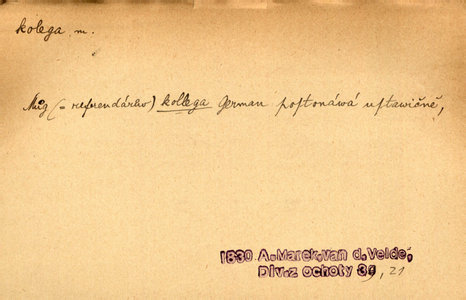 kolega m.
Můg (= referendárův) kollega German postonáwá ustawičně,
1830 A.Marek,van d.Velde,
Div.z ochoty 39, 21